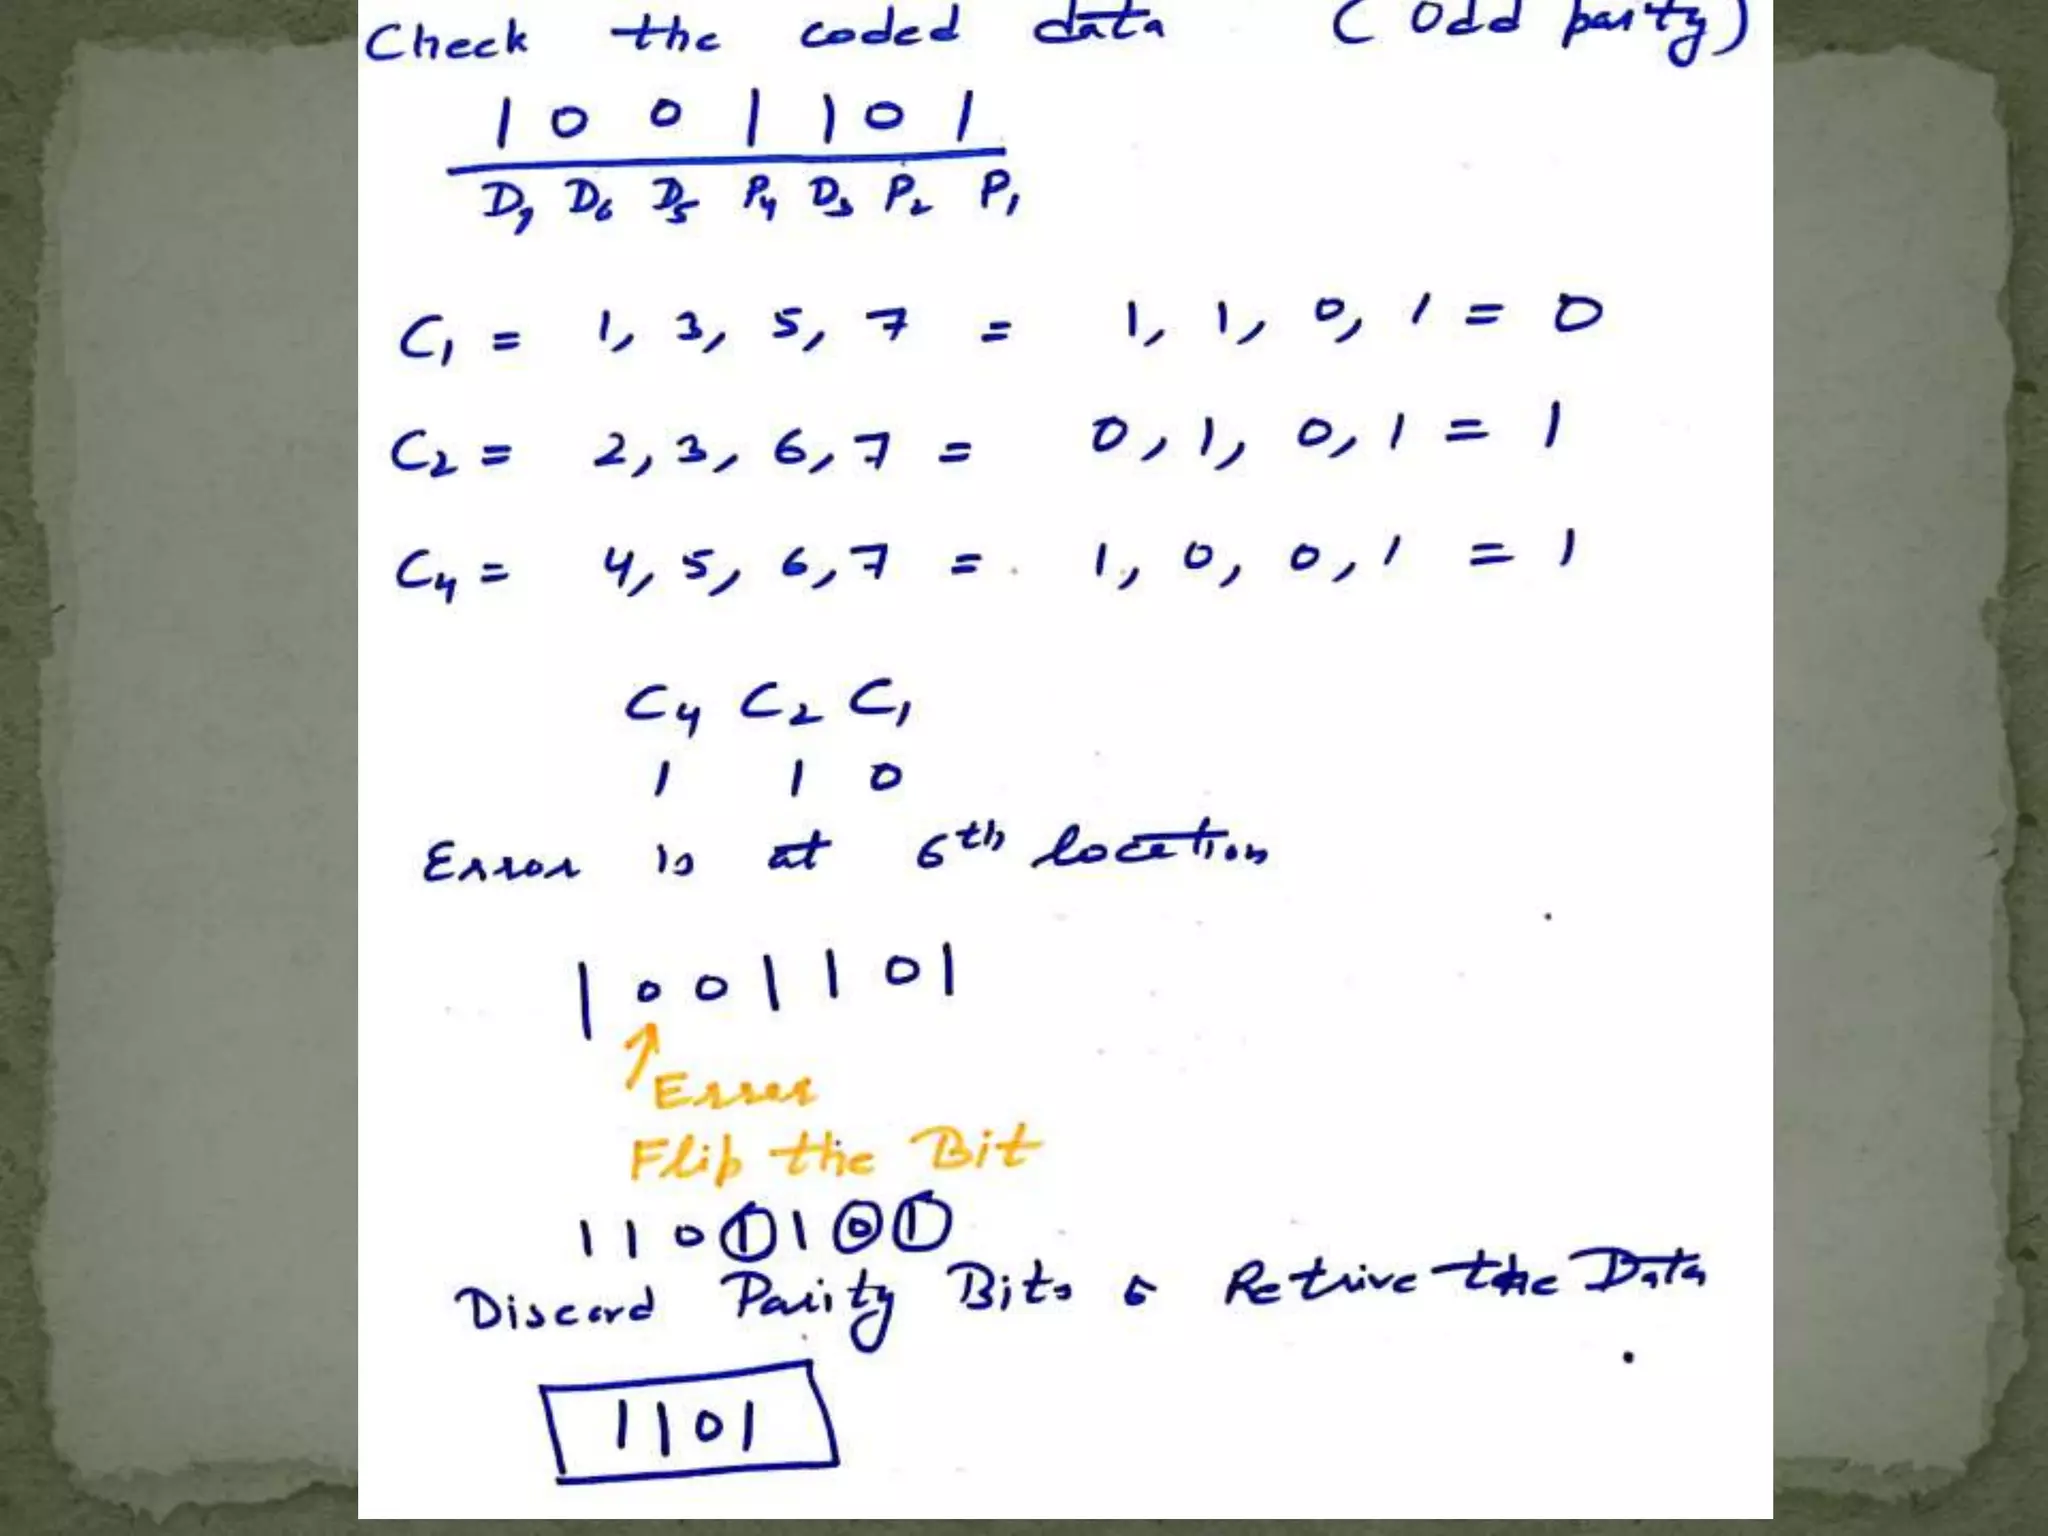 Check the coded data (Odd parity)
1 0 0 1 1 0 1
D7 D6 D5 P4 D3 P2 P1
C1 = 1, 3, 5, 7 = 1, 1, 0, 1 = 0
C2 = 2, 3, 6, 7 = 0, 1, 0, 1 = 1
C4 = 4, 5, 6, 7 = 1, 0, 0, 1 = 1
C4 C2 C1
1 1 0
Error is at 6th location
1 0 0 1 1 0 1
Error
Flip the Bit
1 1 0 1 1 0 1
Discard Parity Bits & Retrive the Data
1101